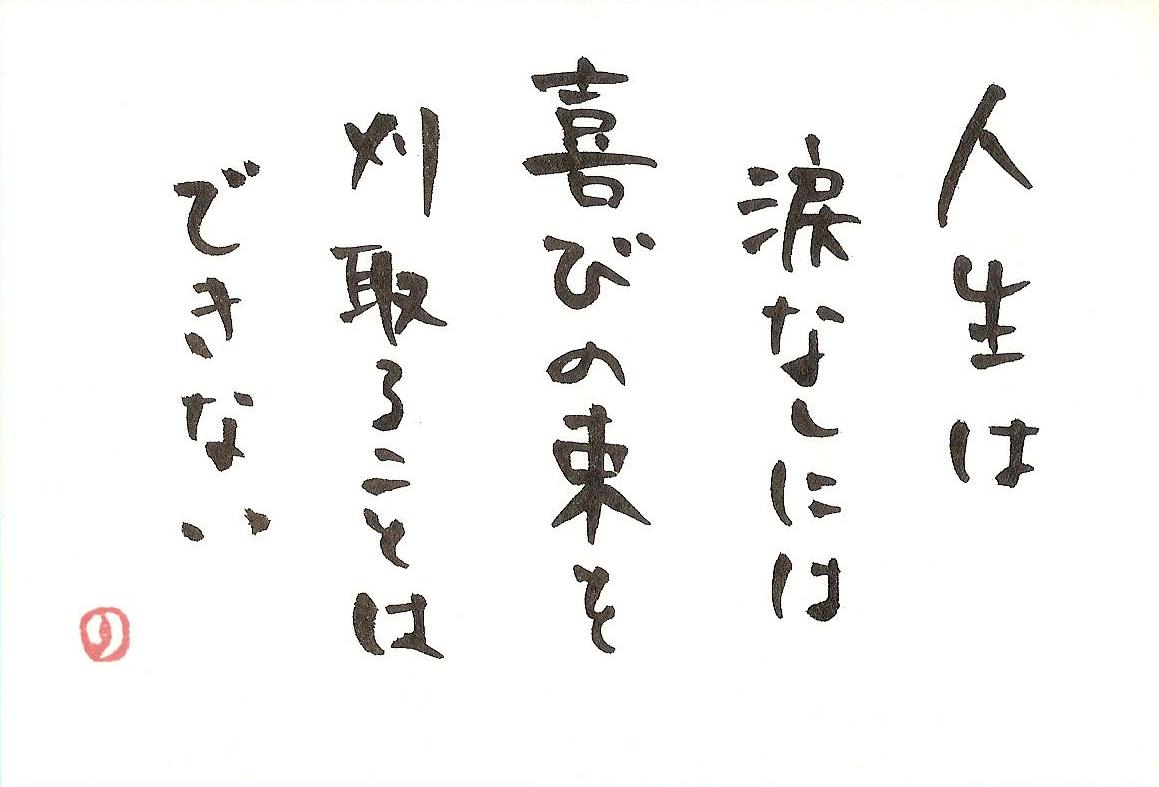 人生は
涙なしには
喜びの束を
刈取ることは
できない
の